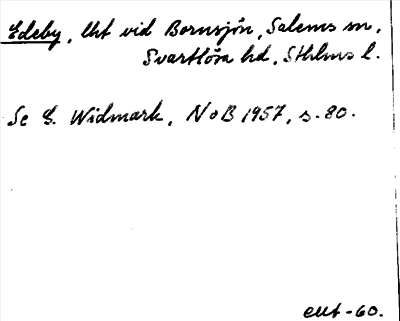 Edeby, lht vid Bornsjön, Salems sn,
Svartlösa hd, Sthlms l.
Se G. Widmark, NoB 1957, s. 80.
-60.